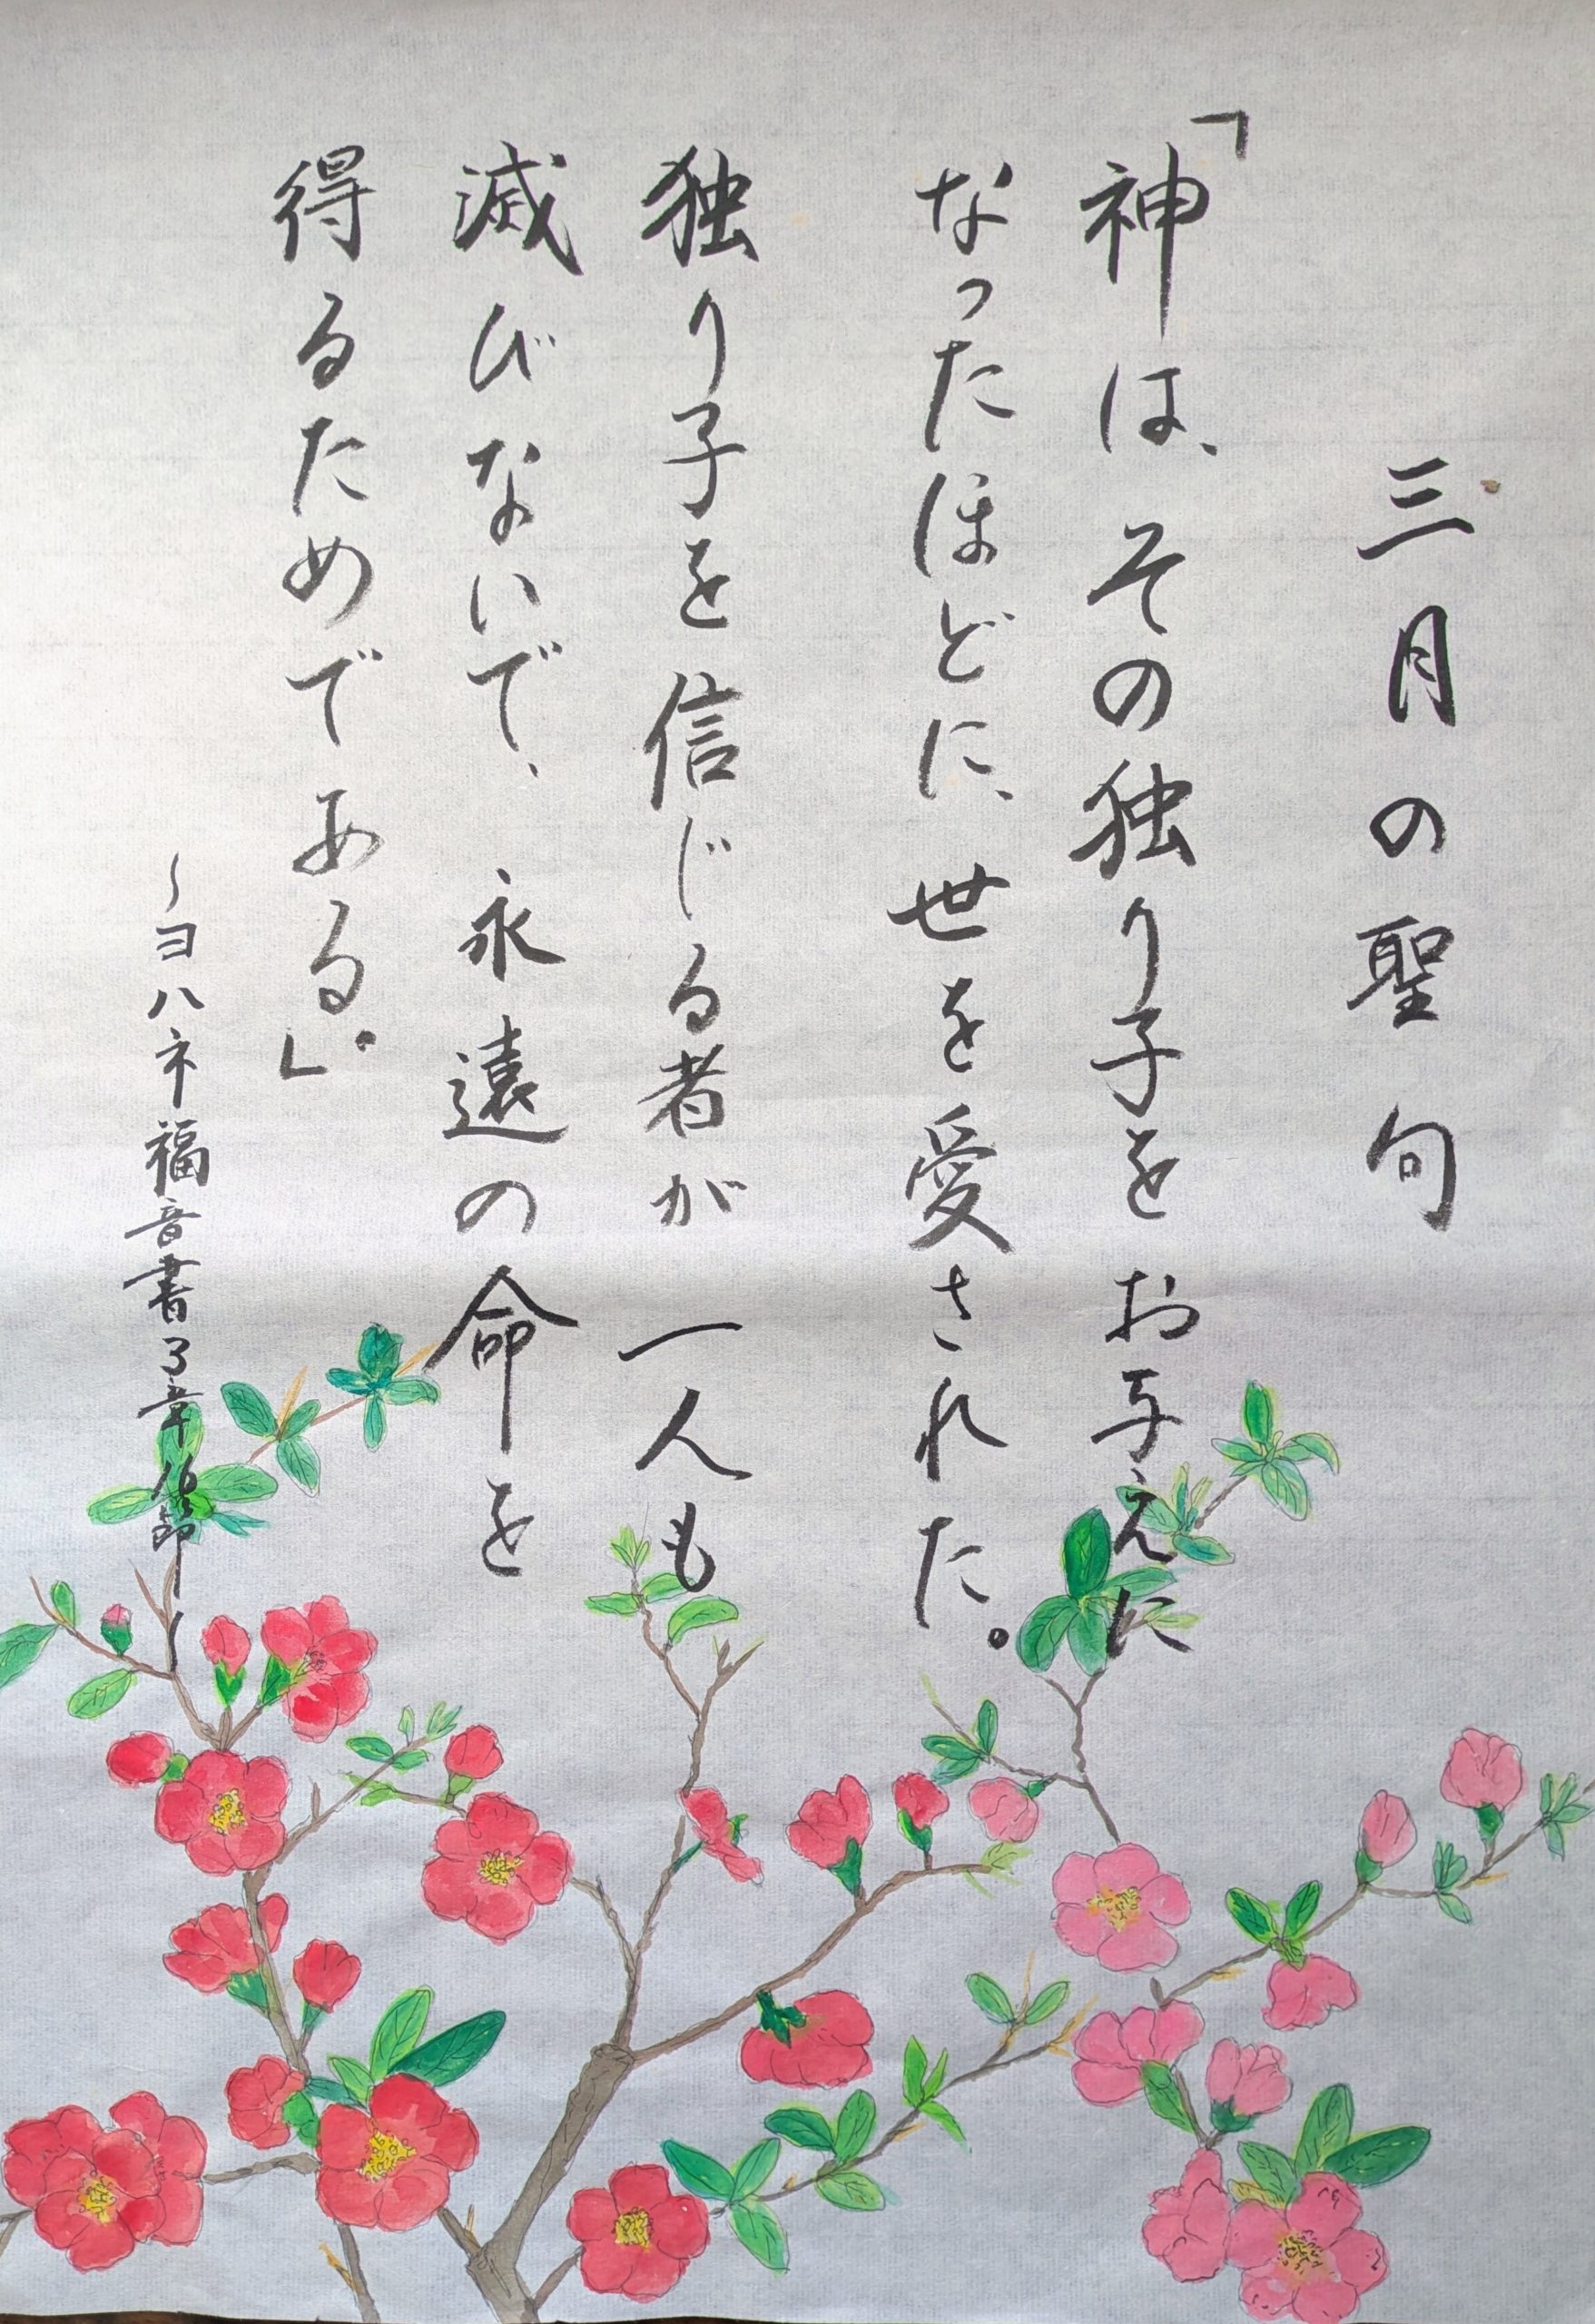 三月の聖句
「神は、その独り子をお与えに
なったほどに、世を愛された。
独り子を信じる者が一人も
滅びないで、永遠の命を
得るためである。」
～ヨハネ福音書3章16節～